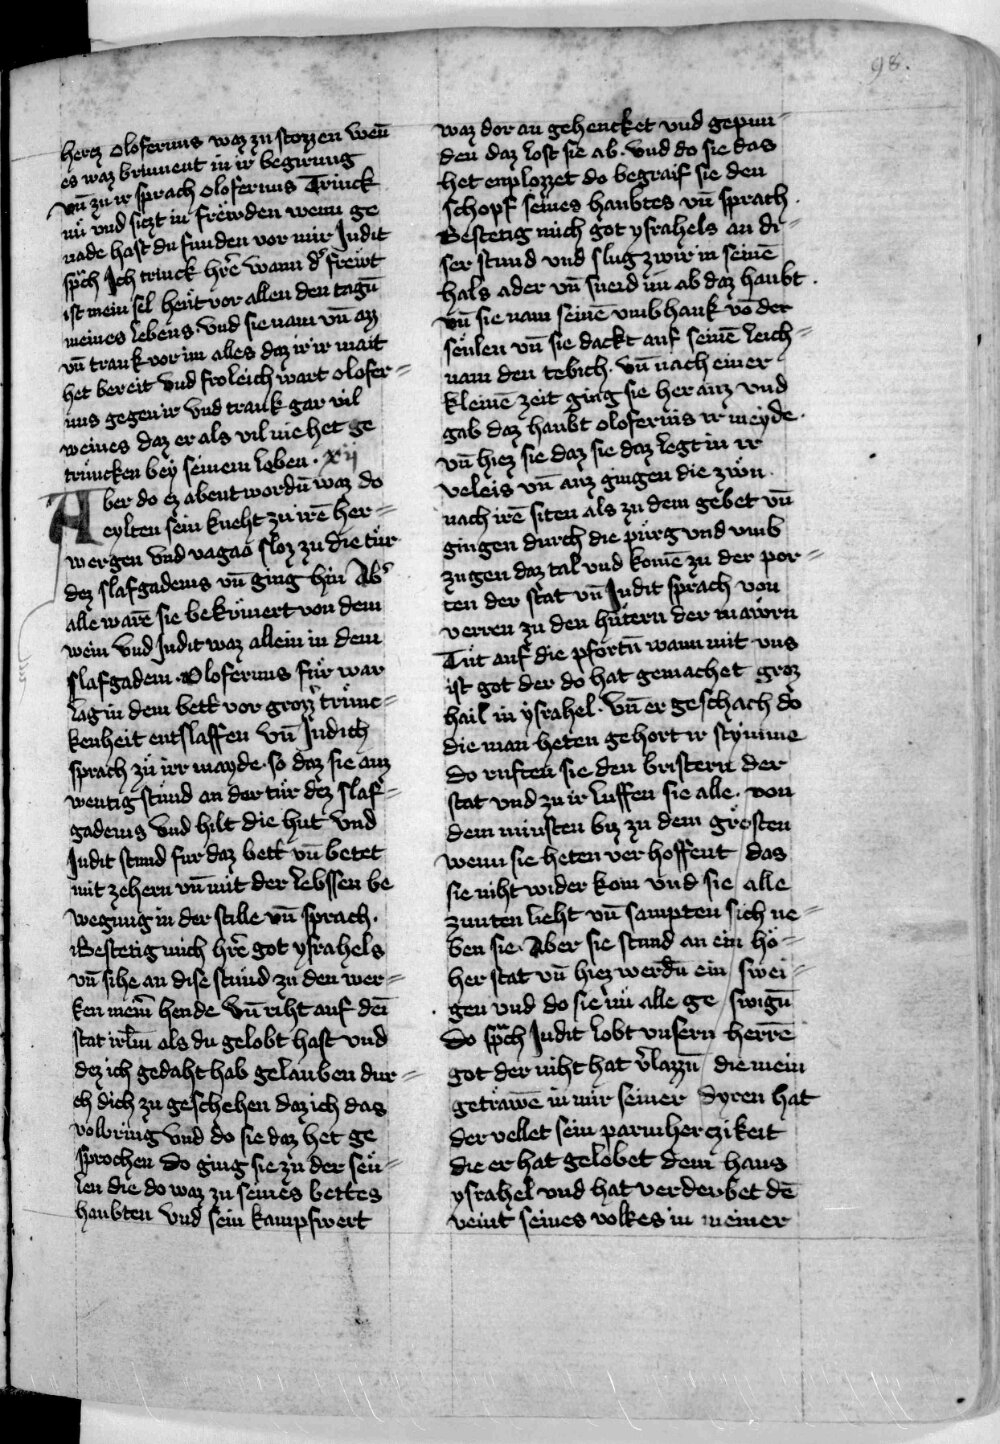 98.
hercz olofernus waz zu stozzen wen̄
es waz brinnent in ir begirung
vn̄ zu ir sprach olofernus Trinck
nu᷑ vnd siczt in frewden wenn ge
nade hast du funden vor mir Judit
sp̄ch Ich trinck hr̄e wann d᷑ frewt
ist mein sel hewt vor allen den tagn̄
meines lebens vnd sie nam vn̄ az
vn̄ trank vor im alles daz ir ir mait
het bereit vnd froleich wart olofer=
nus gegen ir vnd trank gar vil
weines daz er als vil nie het ge
trůncken bey seinem leben · xij
Aber do ez abent wordn̄ waz do
eylten sein kneht zu irē her=
wergen vnd vagao sloz zu die tür
dez slafgadems vn̄ ging hin Ab᷑
alle warē sie bekůmert von dem
wein vnd Judit waz allein in dem
slafgadem · Olofernus fůr war
lag in dem bett vor groz᷑ trůnc=
kenheit entslaffen vn̄ Judith
sprach zů irr mayde · so daz sie auz
wentig stůnd an der tür dez slaf=
gadems vnd hilt die hut vnd
Judit stund fur daz bett vn̄ betet
mit zehern vn̄ mit der lebssen be
wegung in der stille vn̄ sprach ·
Bestetig mich hr̄e got ysrahels
vn̄ sihe an dise stůnd zu den wer=
ken meīn hende vn̄ riht auf dei
stat irl̄m als du gelobt hast vnd
dez ich gedaht hab gelauben dur=
ch dich zu geschehen daz ich das
volbring vnd do sie daz het ge
sprochen do ging sie zu der seů=
len die do waz zu seines bettes
haubten vnd sein kampfswert
waz dor an gehencket vnd gepun=
den daz lost sie ab · vnd do sie das
het enplozzet do begraif sie den
schopf seines haubtes vn̄ sprach ·
Bestetig mich got ysrahels an di=
ser stund vnd slug zwir in seinē
hals ader vn̄ sneid im ab daz haubt ·
vn̄ sie nam seinē vmbhank vō der
seůlen vn̄ sie dackt auf seinē leich=
nam den tebich · vn̄ nach einer
kleinē zeit ging sie her auz vnd
gab daz haubt olofernis ir meyde ·
vn̄ hiez sie daz sie daz legt in ir
veleis vn̄ auz gingen die zwůn ·
nach irē siten als zu dem gebet vn̄
gingen durch die půrg vnd vmb
zugen daz tal vnd komē zu der por=
ten der stat vn̄ Judit sprach von
verren zu den hůtern der mawrn
Tůt auf die pfortn̄ wann mit vns
ist got der do hat gemachet groz
hail in ysrahel · vn̄ er geschach do
die man heten gehort ir stymme
do ruften sie den bristern der
stat vnd zu ir luffen sie alle · von
dem minsten biz zu dem grösten
wenn sie heten ver hoffent das
sie niht wider kom vnd sie alle
zunten lieht vn̄ sampten sich ne=
ben sie · Aber sie stund an ein hö=
her stat vn̄ hiez werdn̄ ein swei=
gen vnd do sie nu alle ge swign̄
do sp̄ch Judit lobt vnsern herrē
got der niht hat v᷑lazzn̄ die mein
getrawē in mir seiner dyren hat
der vellet sein parmherczikeit
die er hat gelobet dem haus
ysrahel vnd hat verderbet dē
veint seines volkes in meiner